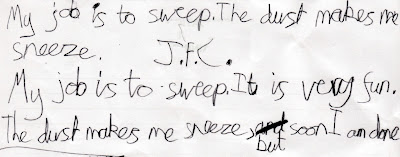 My job is to sweep. The dust makes me
sneeze. J.F.C.
My job is to sweep. It is very fun.
The dust makes me sneeze, and soon I am done
but